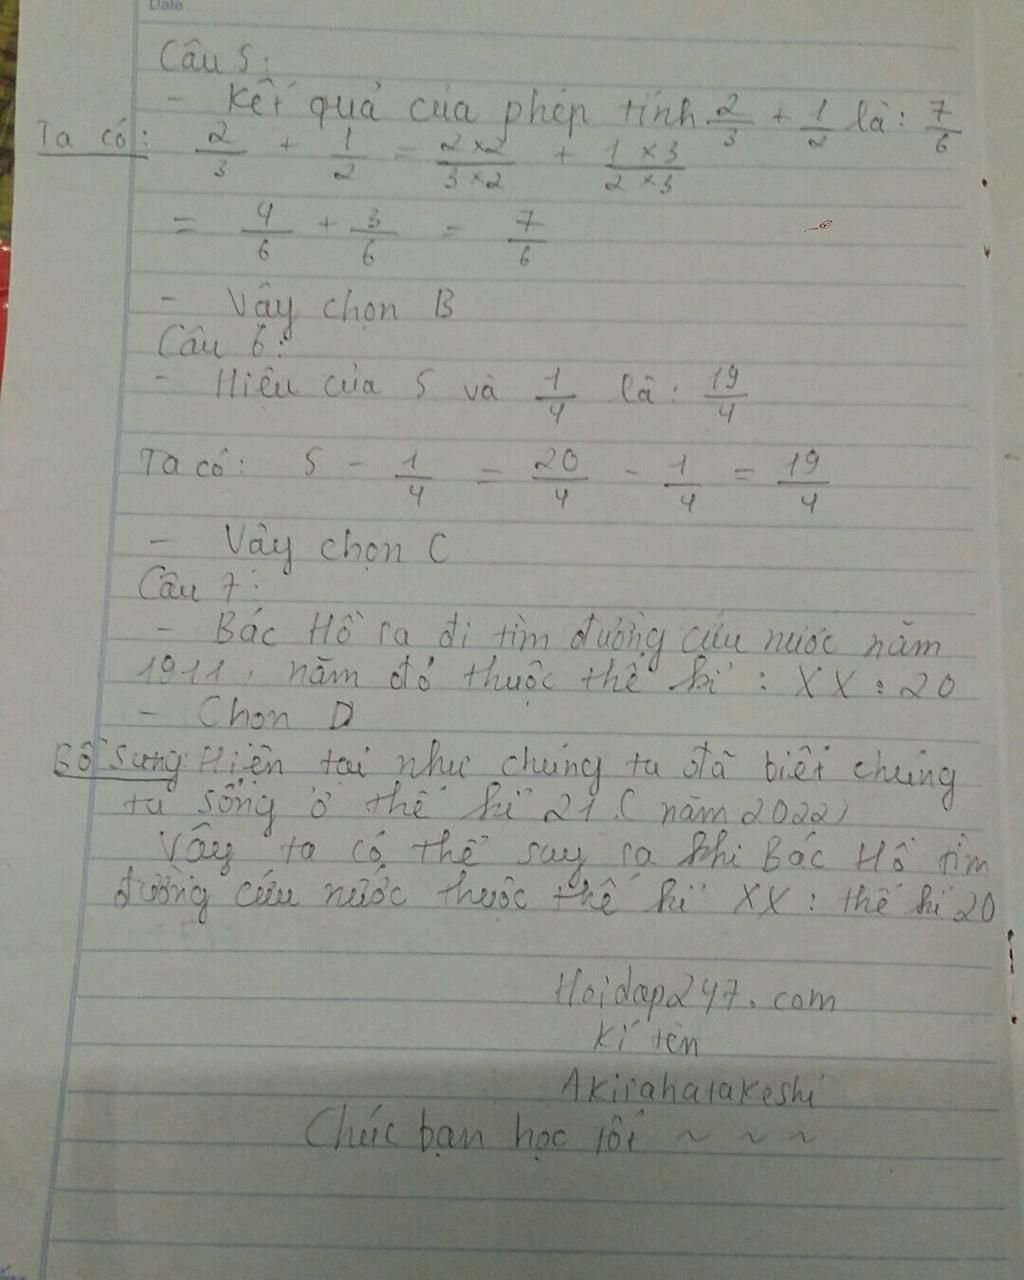 Date
Câu 5:
- Kết quả của phép tính 2/3 + 1/2 là: 7/6
Ta có: 2/3 + 1/2 = 2×2/3×2 + 1×3/2×3
= 4/6 + 3/6 = 7/6
- Vậy chọn B
Câu 6:
- Hiệu của 5 và 1/4 là: 19/4
Ta có: 5 - 1/4 = 20/4 - 1/4 = 19/4
- Vậy chọn C
Câu 7:
- Bác Hồ ra đi tìm đường cứu nước năm
1911, năm đó thuộc thế kỉ: XX: 20
- Chọn D
Bổ sung: Hiện tại như chúng ta đã biết chúng
ta sống ở thế kỉ 21 (năm 2022)
Vậy ta có thể suy ra khi Bác Hồ tìm
đường cứu nước thuộc thế kỉ XX: thế kỉ 20
Hoidap247.com
Kí tên
Akirahatakeshi
Chúc bạn học tốt ~ ~ ~